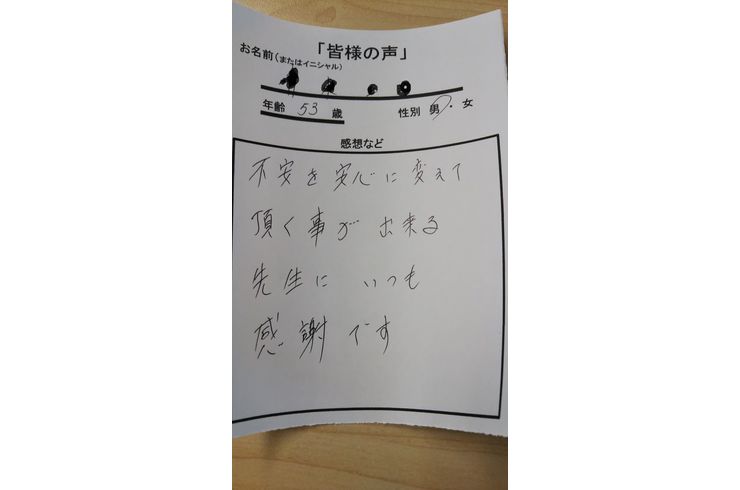 「皆様の声」
お名前(またはイニシャル)
年齢 53 歳 性別 男・女
感想など
不安を安心に変えて
頂く事が出来る
先生に いつも
感謝です